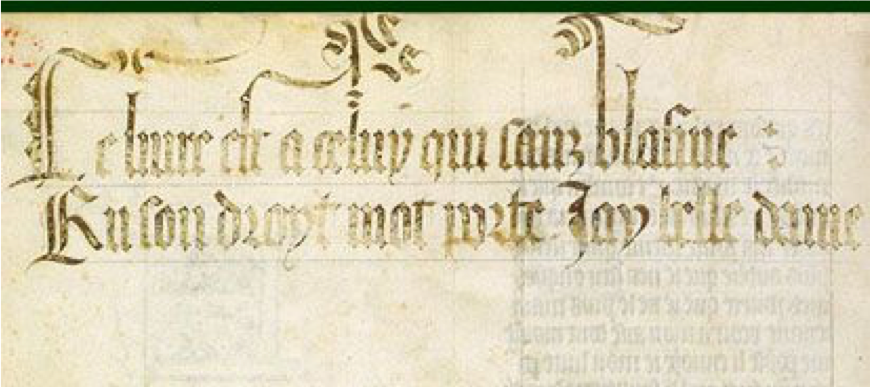 Le liure est a celuy qui sanz blasme
En son droyt mot porte Jay belle dame